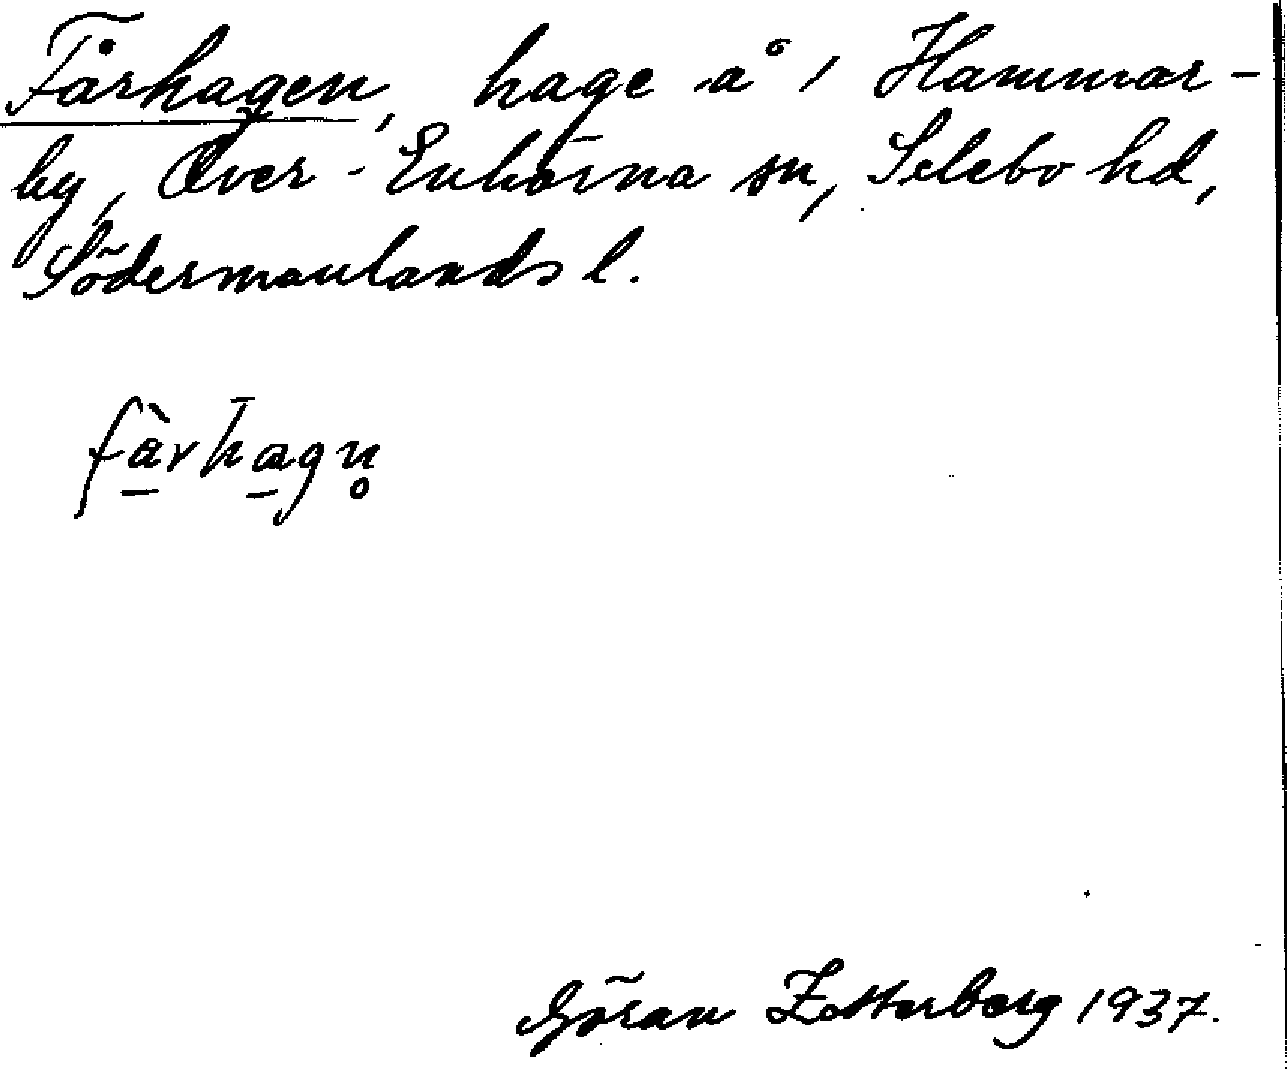 Fårhagen, hage å 1 Hammar-
by, Över-Enhörna sn, Selebo hd,
Södermanlands l.
fàrhagn̥
Göran Zetterberg 1937.